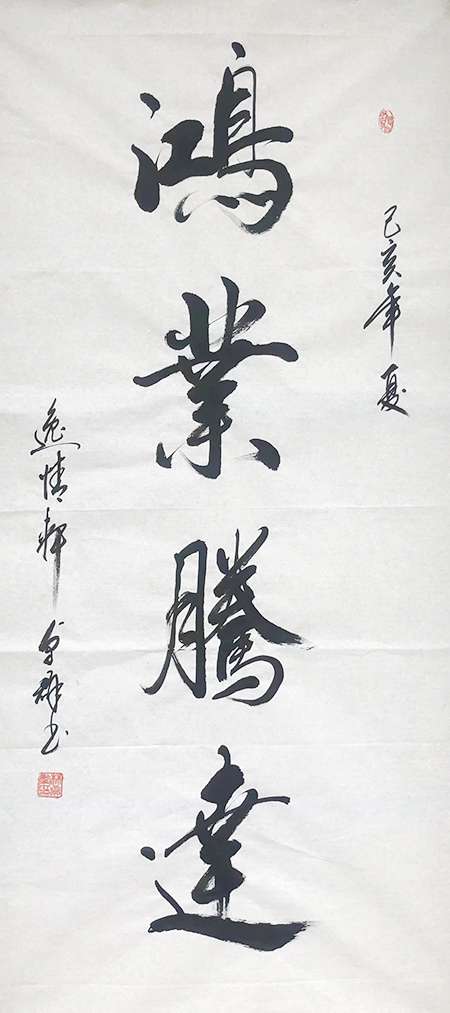 己亥年夏
鴻業騰達
逸情軒
書